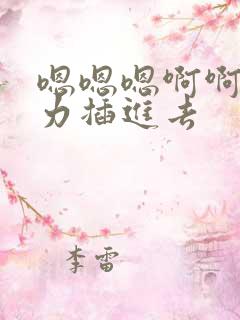 嗯嗯嗯啊啊
力插進去
李雷